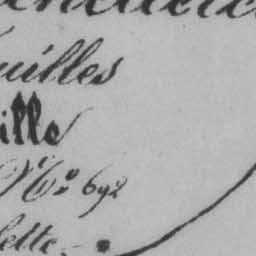 uilles
ille
Nº 692
lette